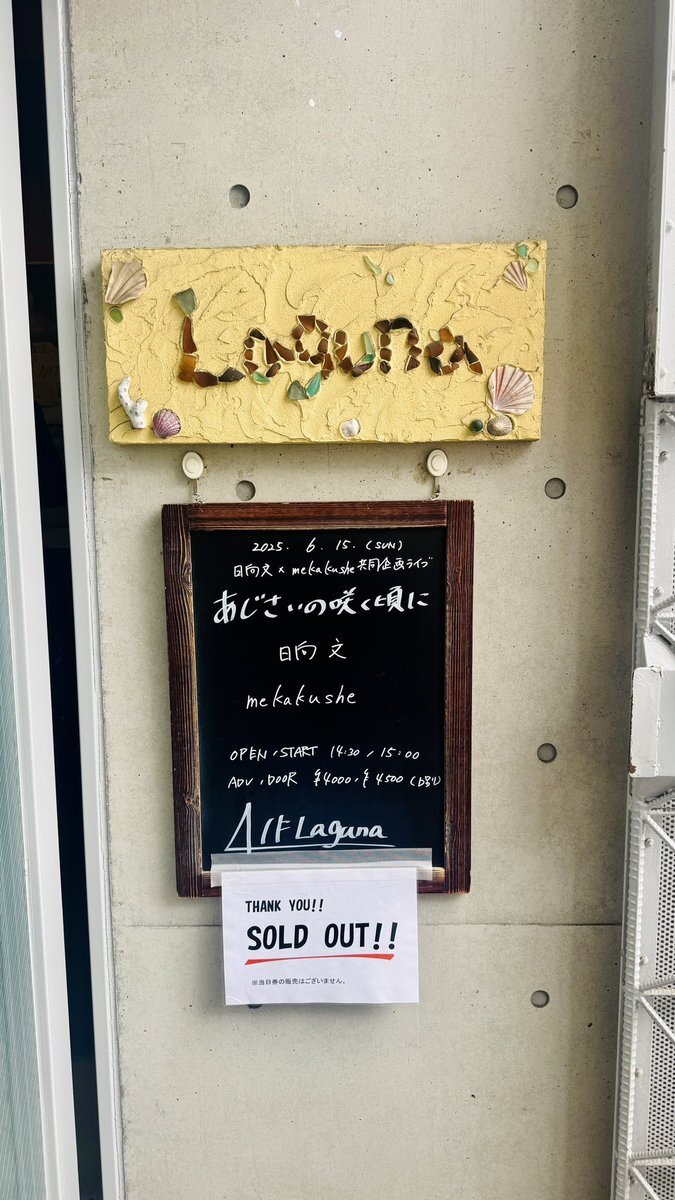 Laguna
2025. 6. 15. (SUN)
日向文×mekakushe共同企画ライブ
あじさいの咲く頃に
日向 文
mekakushe
OPEN, START 14:30, 15:00
ADV, DOOR ¥4000, ¥4500 (D別)
Laguna
THANK YOU!!
SOLD OUT!!
※当日券の販売はございません。